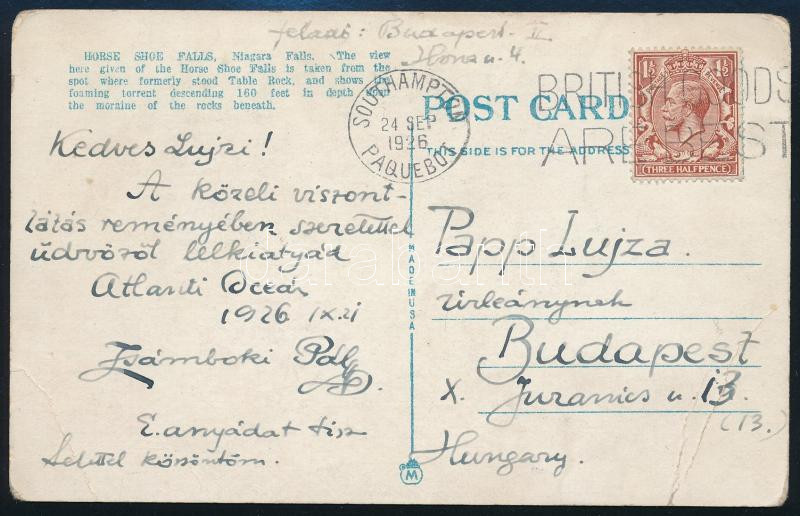 feladó: Budapest II
Ilona u. 4.
HORSE SHOE FALLS, Niagara Falls. The view
here given of the Horse Shoe Falls is taken from the
spot where formerly stood Table Rock, and shows the
foaming torrent descending 160 feet in depth from
the moraine of the rocks beneath.
SOUTHAMPTON
24 SEP
1926
PAQUEBOT
BRITISH GOODS
ARE BEST
1½ 1½
THREE HALFPENCE
POST CARD
THIS SIDE IS FOR THE ADDRESS
Kedves Lujzi!
A közeli viszont-
látás reményében szeretettel
üdvözöl lelkiatyád
Atlanti Oceán
1926 IX.21
Zsámboki Pál
E. anyádat tisz
telettel köszöntöm.
MADE IN USA
M
Papp Lujza
úrleánynak
Budapest
X. Juranics u. 13.
(13.)
Hungary.
darabanth